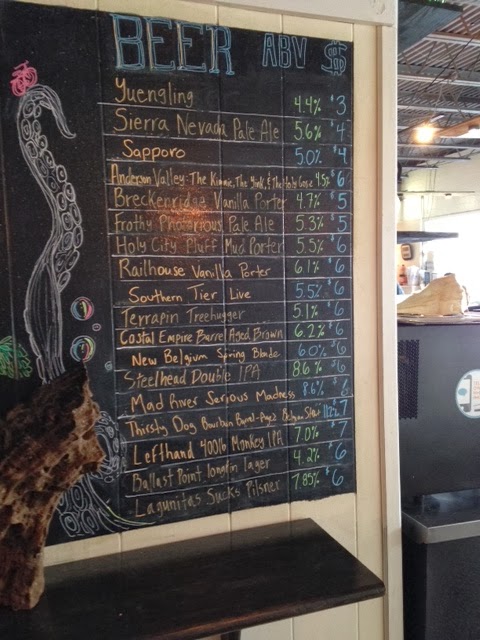 BEER ABV $
Yuengling 4.4% $3
Sierra Nevada Pale Ale 5.6% $4
Sapporo 5.0% $4
Anderson Valley-The Kimmie, The Yink, & The Holy Gose 4.5% $6
Breckenridge Vanilla Porter 4.7% $5
Frothy Pale Ale 5.3% $5
Holy City Pluff Mud Porter 5.5% $6
Railhouse Vanilla Porter 6.1% $6
Southern Tier Live 5.5% $6
Terrapin Treehugger 5.1% $6
Costal Empire Barrel Aged Brown 6.2% $6
New Belgium Spring Blonde 6.0% $6
Steelhead Double IPA 8.6% $6
Mad River Serious Madness 8.6% $6
Thirsty Dog Bourbon Barrel $7
Lefthand 400lb Monkey IPA 7.0% $7
Ballast Point longfin lager 4.2% $6
Lagunitas Sucks Pilsner 7.85% $6